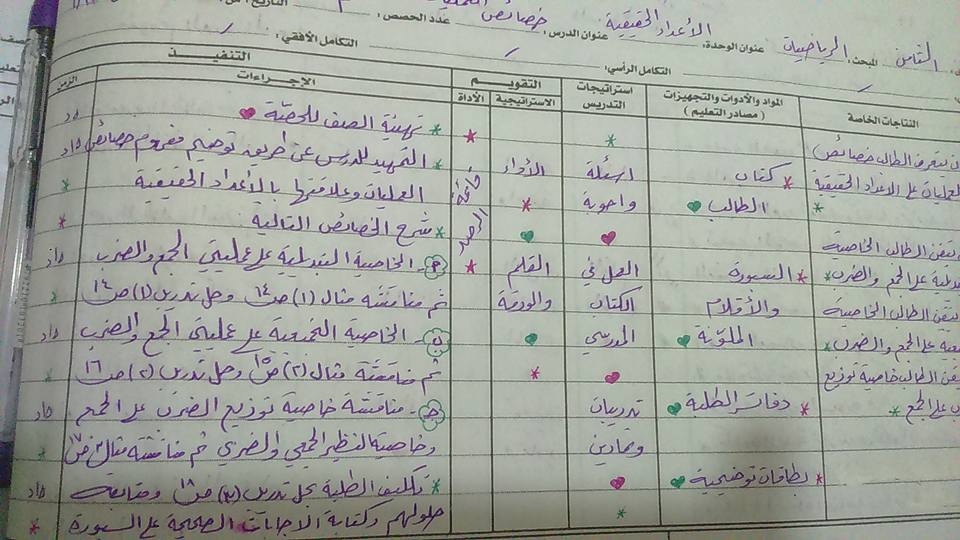 الثامن المبحث: الرياضيات عنوان الوحدة: الأعداد الحقيقية عنوان الدرس: خصائص
عدد الحصص:
التاريخ: من:
التكامل الرأسي:
التكامل الأفقي:
النتاجات الخاصة
المواد والأدوات والتجهيزات
(مصادر التعليم)
استراتيجات
التدريس
التقويم
الاستراتيجية
الأداة
التنفيذ
الإجراءات
الزمن
أن يتعرف الطالب خصائص
العمليات على الاعداد الحقيقية
يتقن الطالب الخاصية
على الجمع والضرب
يتقن الطالب الخاصية
على الجمع والضرب
يتقن الطالب خاصية توزيع
على الجمع
كتاب
الطالب
السبورة
والأقلام
الملونة
دفاتر الطلبة
بطاقات توضيحية
اسئلة
واجوبة
العمل في
الكتاب
المدرسي
تدريبات
وتمارين
الأداء
القلم
والورقة
قائمة
الرصد
تهيئة الصف للحصة
التمهيد للدرس عن طريق توضيح مفهوم خصائص
العمليات وعلاقتها بالأعداد الحقيقية
شرح الخصائص التالية
الخاصية التبديلية على عمليتي الجمع والضرب
ثم مناقشة مثال (١) ص١٤ وحل تدريب (١) ص١٤
ب- الخاصية التجميعية على عمليتي الجمع والضرب
ثم مناقشة مثال (٢) ص١٥ وحل تدريب (٢) ص١٦
ج- مناقشة خاصية توزيع الضرب على الجمع
وخاصية النظير الجمعي والضربي ثم مناقشة مثال ص١٧
تكليف الطلبة بحل تدريب (٣) ص١٨ ومتابعة
حلولهم وكتابة الاجابات الصحيحة على السبورة